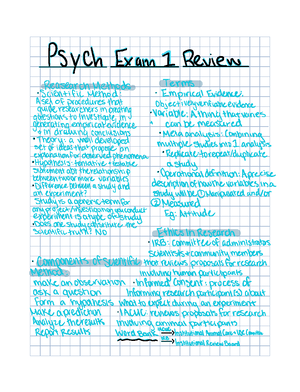 Psych Exam 1 Review
Research Methods
• Scientific Method:
A set of procedures that
guide researchers in creating
questions to investigate, in
generating empirical evidence
in drawing conclusions
• Theory: a well developed
set of ideas that propose an
explanation for observed phenomena
• Hypothesis: tentative testable
statement abt the relationship
between two or more variables
• Difference between a study and
an experiment?
Study is a generic term for
any project/investigation you conduct
experiment is a type of study
• Does one study constitute the
scientific truth? NO
• Components of Scientific
Method
make an observation
ask a question
Form a hypothesis
Make a prediction
Analyze the results
Report Results
Terms
• Empirical Evidence:
Objectively verifiable evidence
• Variable: A thing that varies
can be measured
• Meta analysis: Combining
multiple studies in 1 analysis
• Replicate: to repeat/duplicate
a study
• Operational definition: A precise
description of how the variables in a
study will be ① Manipulated and/or
② Measured
Eg: Attitude
Ethics in Research
• IRB: committee of administrators
scientists + community members
that reviews proposals for research
involving human participants
• Informed consent: process of
informing research participants about
what to expect during an experiment
• IACUC reviews proposals for research
involving
participants
Word Bank
IACUC → Institutional Animal Care + Use Committee
IRB → Institutional Review Board